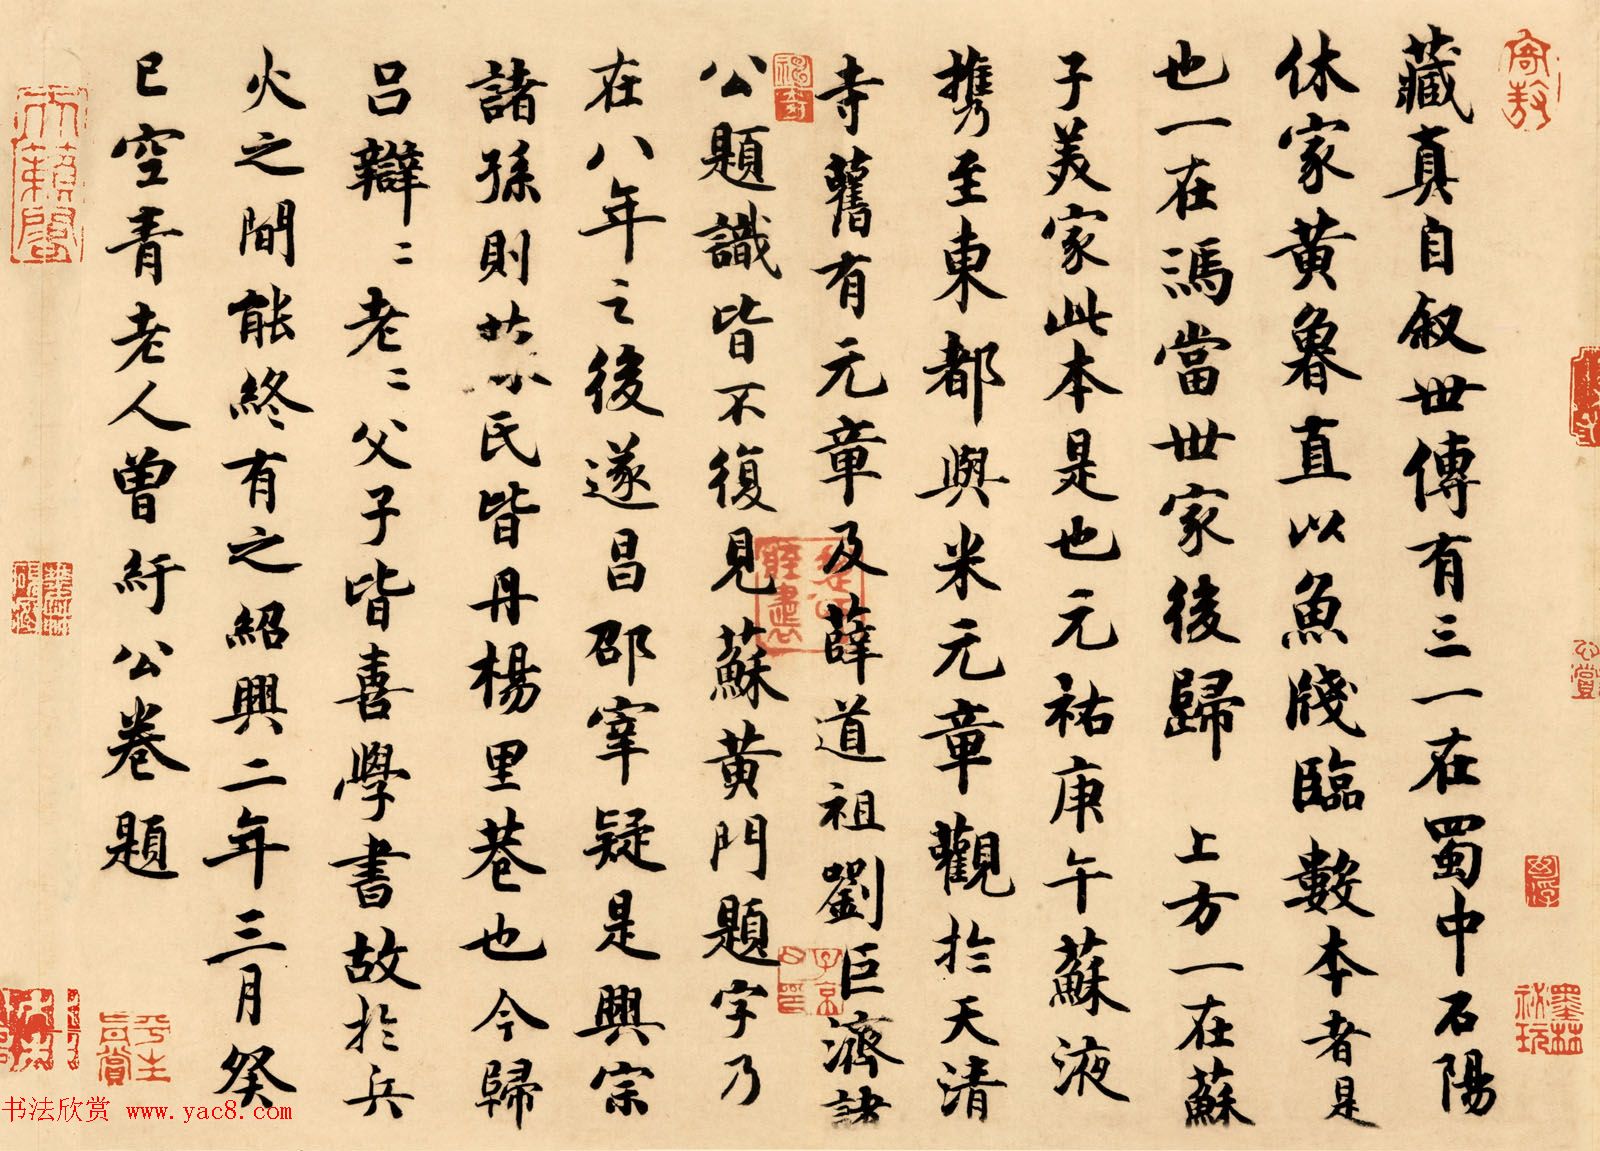 藏真自叙世傳有三一在蜀中石陽
休家黃魯直以魚牋臨數本者是
也一在馮當世家後歸 上方一在蘇
子美家此本是也元祐庚午蘇液
携至東都與米元章觀於天清
寺舊有元章及薛道祖劉巨濟諸
公題識皆不復見蘇黃門題字乃
在八年之後遂昌邵宰疑是興宗
諸孫則蘇氏皆丹楊里巷也今歸
呂辯〻老〻父子皆喜學書故於兵
火之間能終有之紹興二年三月癸
巳空青老人曾紆公卷題
天籟閣
墨林祕玩
平生真賞
子京
書法欣賞 www.yac8.com